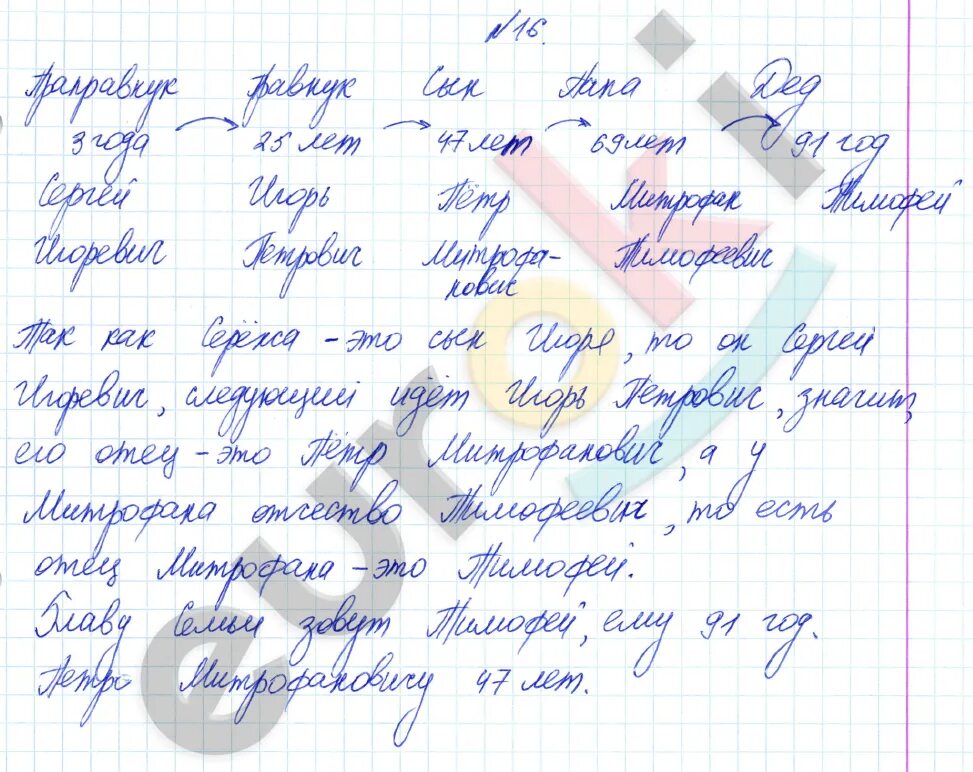 №16.
Праправнук Правнук Сын Папа Дед
3 года 25 лет 47 лет 69 лет 91 год
Сергей Игорь Пётр Митрофан Тимофей
Игоревич Петрович Митрофа- Тимофеевич
нович
Так как Серёжа – это сын Игоря, то он Сергей
Игоревич, следующий идёт Игорь Петрович, значит,
его отец – это Пётр Митрофанович, а у
Митрофана отчество Тимофеевич, то есть
отец Митрофана – это Тимофей.
Главу Семьи зовут Тимофей, ему 91 год.
Петро Митрофановичу 47 лет.
euroki